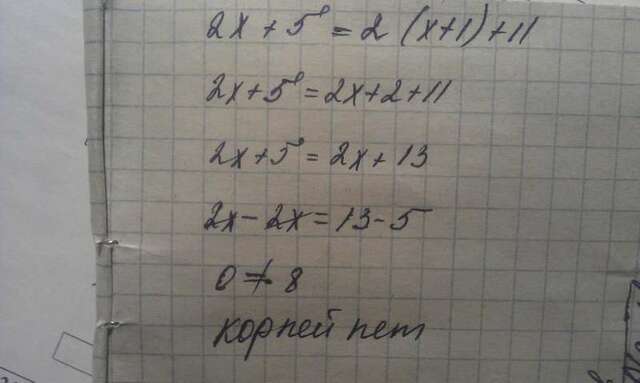 2x + 5 = 2 (x+1) + 11
2x + 5 = 2x + 2 + 11
2x + 5 = 2x + 13
2x - 2x = 13 - 5
0 ≠ 8
корней нет